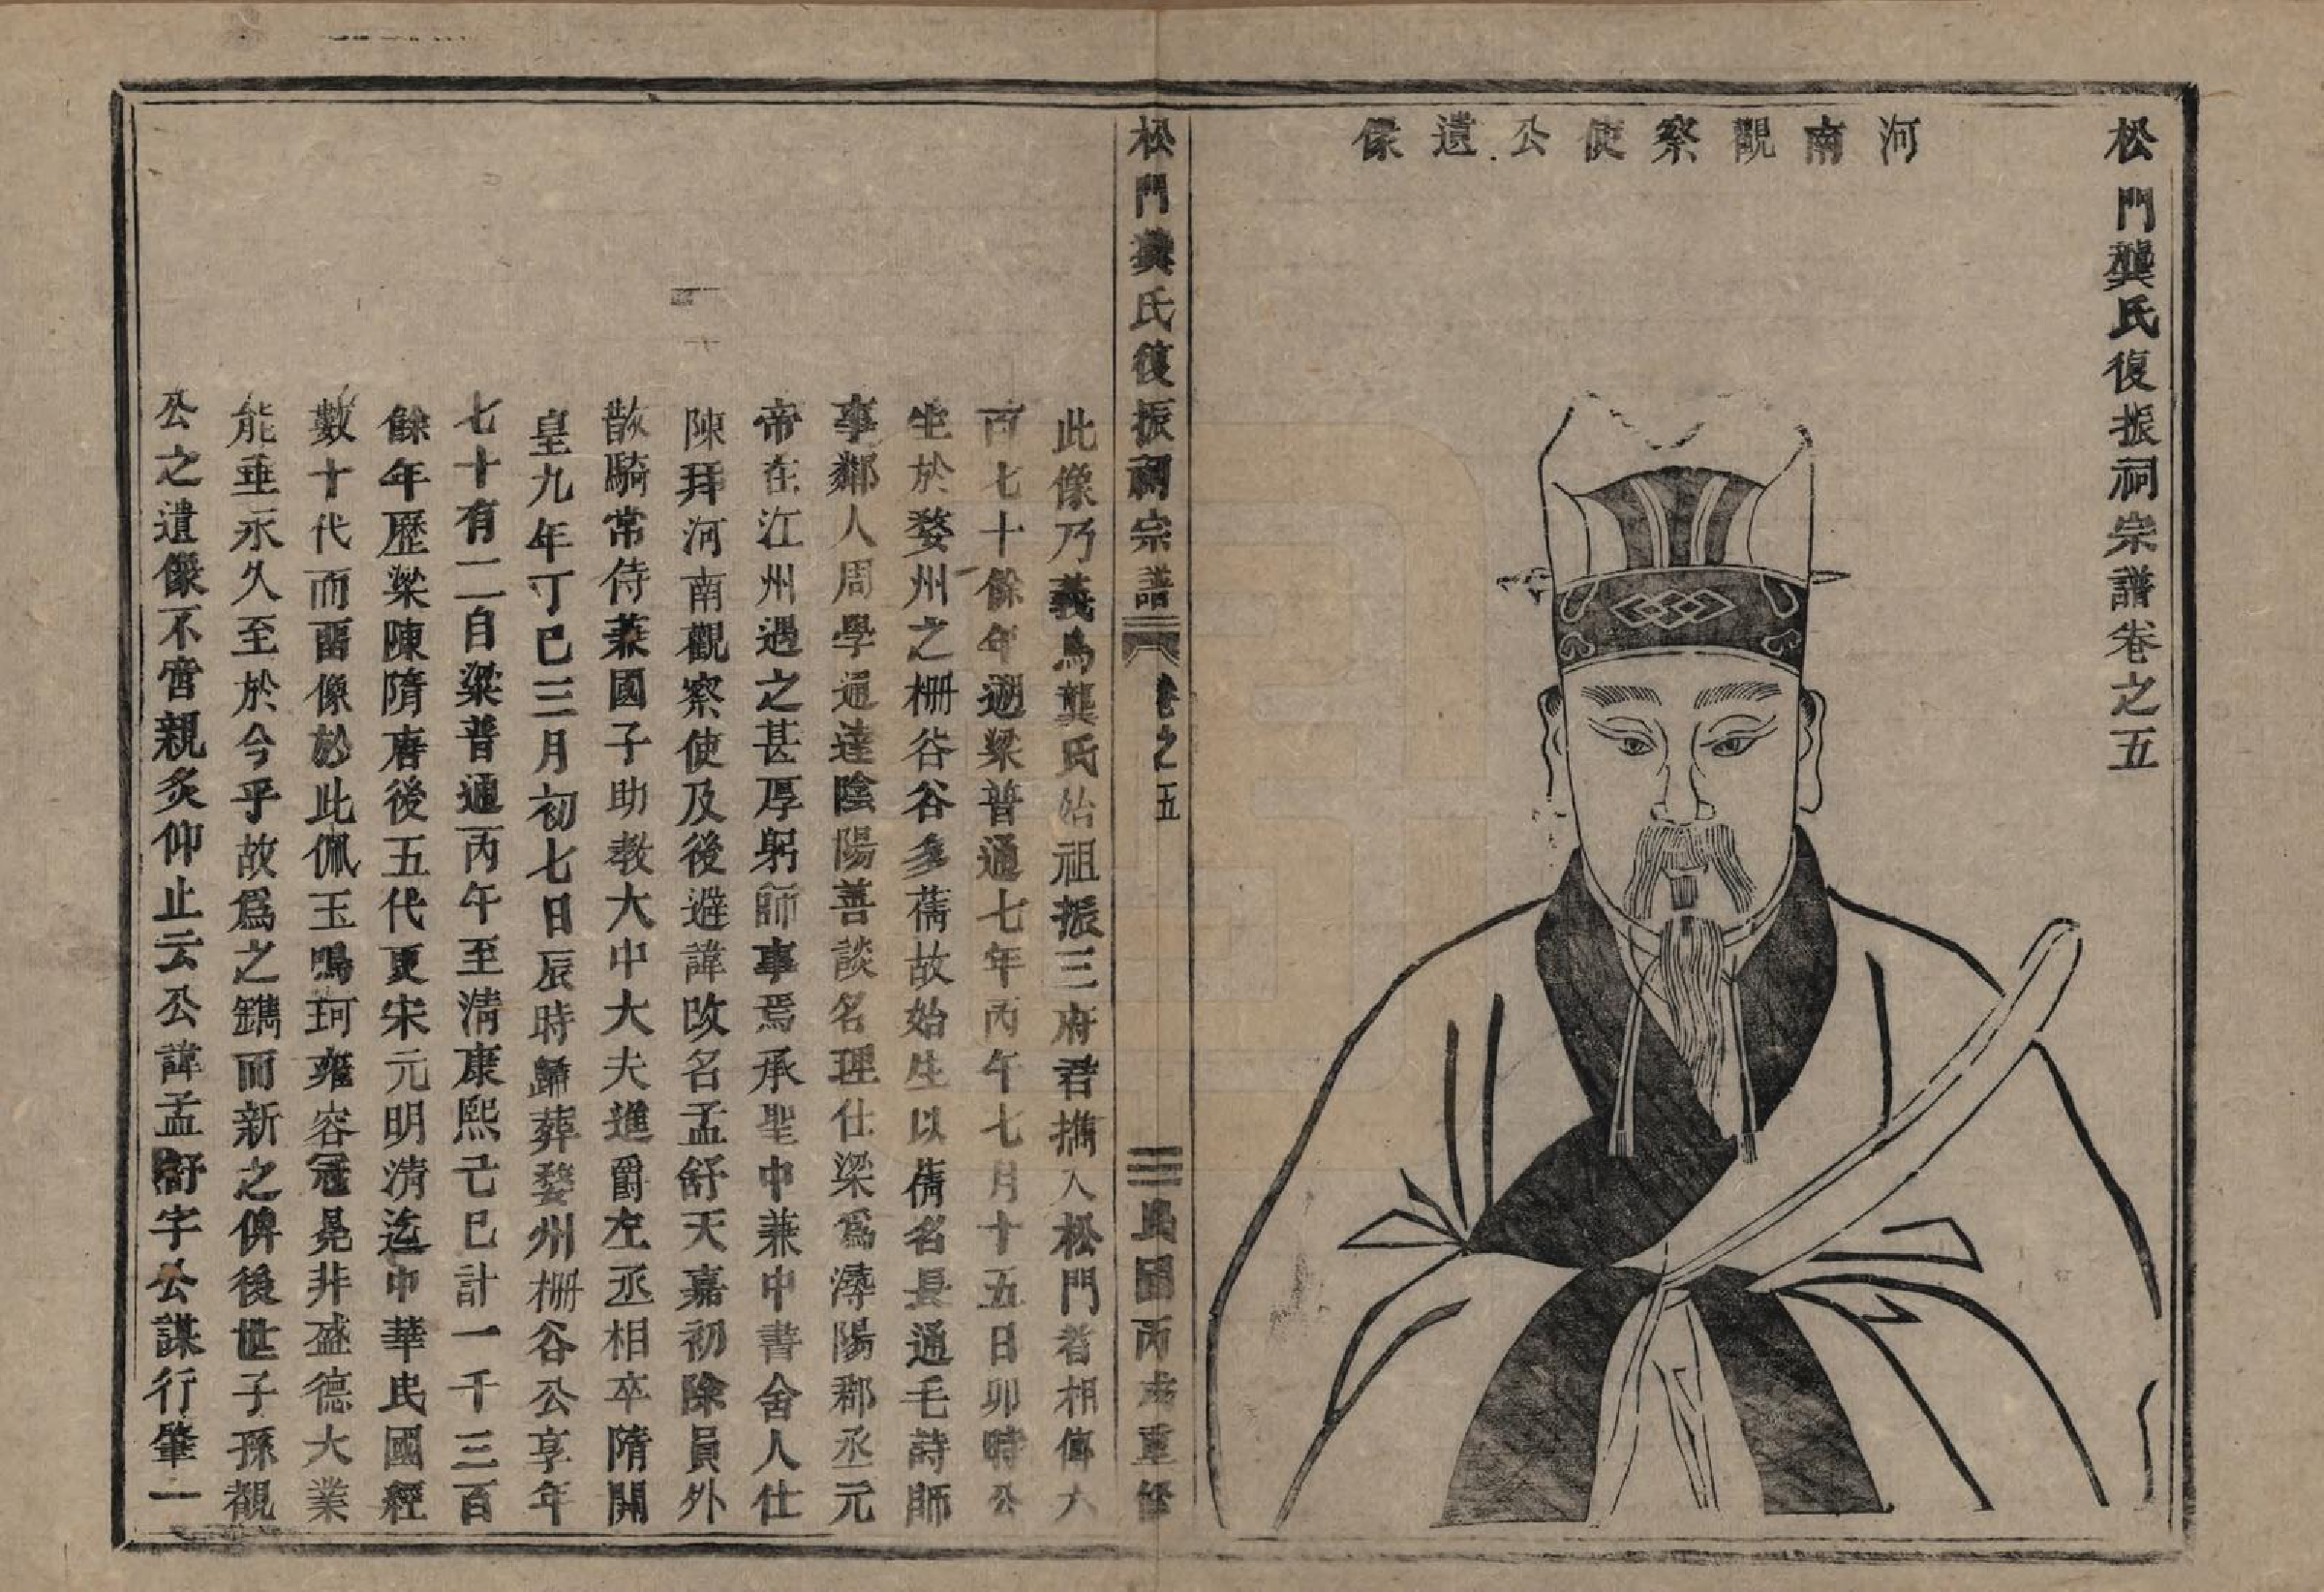 松門龔氏復振祠宗譜卷之五
河南觀察使公遺像
松門龔氏復振祠宗譜 卷之五 民國丙戌重修
此像乃義烏龔氏始祖振三府君攜入松門者相傳六
百七十餘年遡梁普通七年丙午七月十五日卯時公
生於婺州之柵谷谷多蒨故始生以蒨名長通毛詩師
事鄰人周學通達陰陽善談名理仕梁為潯陽郡丞元
帝在江州遇之甚厚躬師事焉承聖中兼中書舍人仕
陳拜河南觀察使及後避諱改名孟舒天嘉初除員外
散騎常侍兼國子助教大中大夫進爵左丞相卒隋開
皇九年丁巳三月初七日辰時歸葬婺州柵谷公享年
七十有二自梁普通丙午至清康熙己巳計一千三百
餘年歷梁陳隋唐後五代更宋元明清迄中華民國經
數十代而畱像於此佩玉鳴珂雍容冠冕非盛德大業
能垂永久至於今乎故爲之鐫而新之俾後世子孫覩
公之遺像不啻親炙仰止云公諱孟舒字公謀行肇一